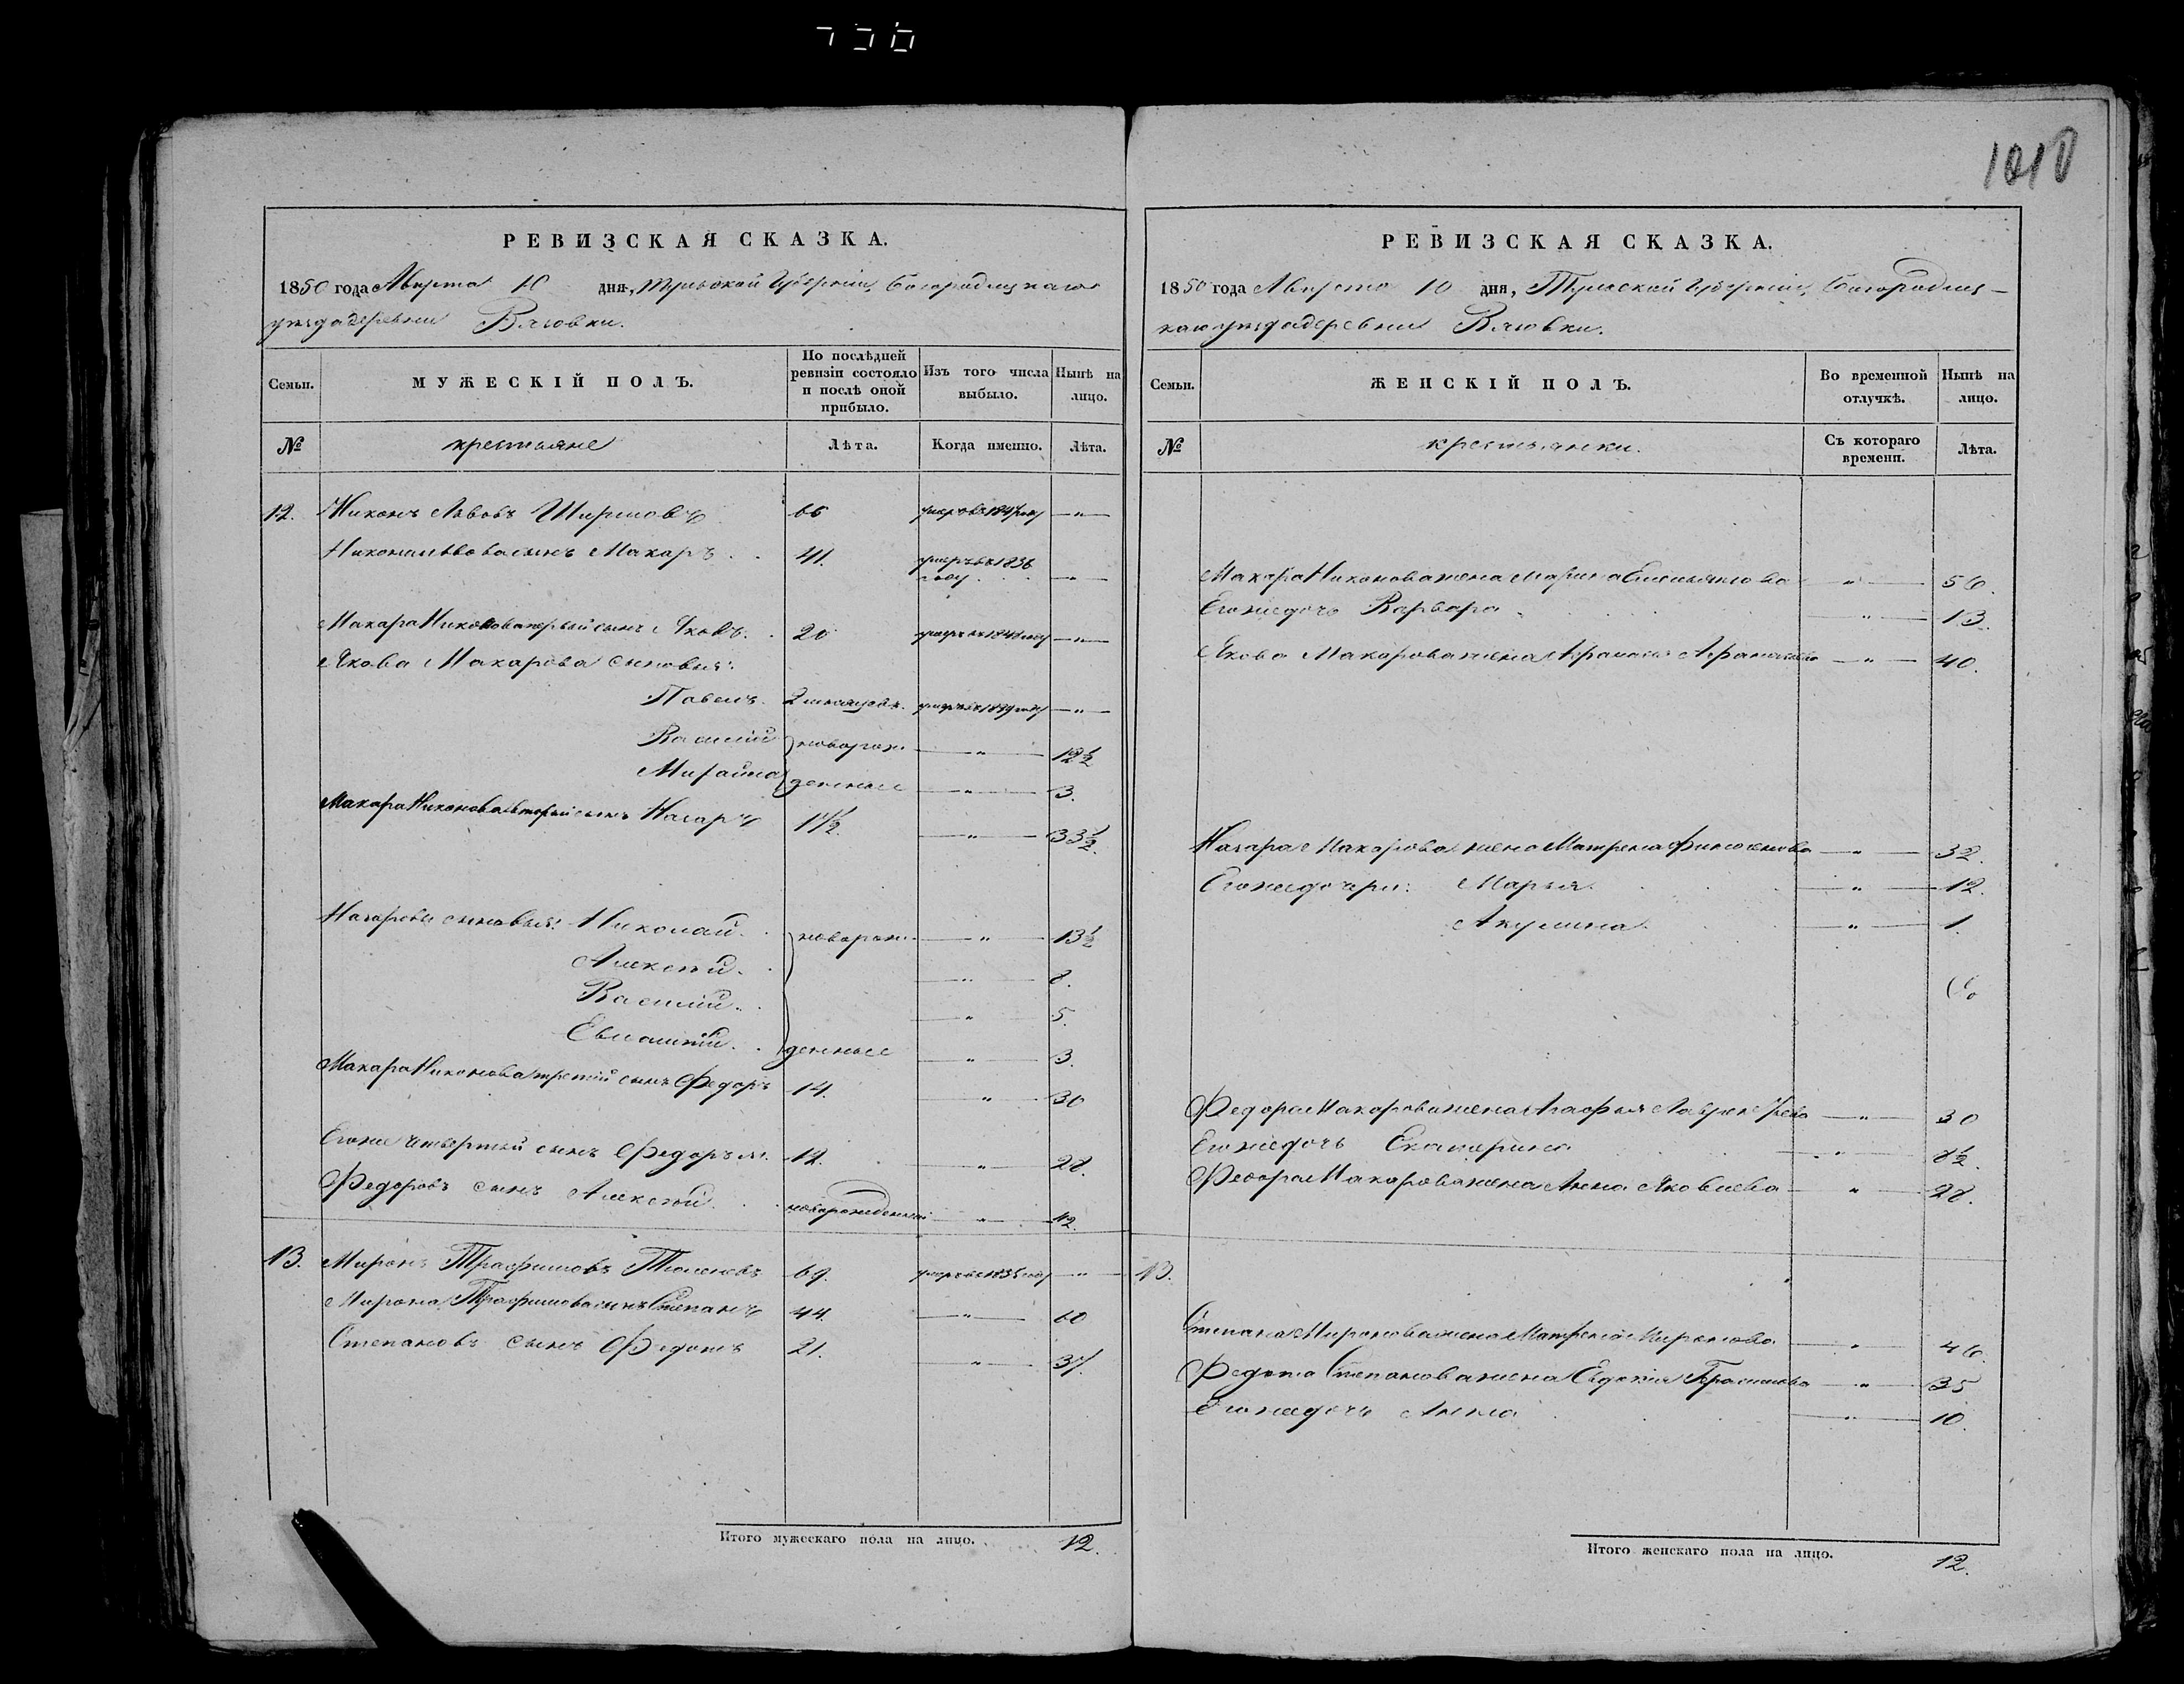 1010
РЕВИЗСКАЯ СКАЗКА.
1850 года Августа 10 дня, Тульской Губерніи, Богородицкаго
уѣзда деревни Вязовки.
Семьи.
МУЖЕСКІЙ ПОЛЪ.
По послѣдней ревизіи состояло и послѣ оной прибыло.
Изъ того числа выбыло.
Нынѣ на лицо.
№ крестьяне Лѣта. Когда именно. Лѣта.
12. Никонъ Львовъ 66 умеръ въ году — " —
Никона Львова сынъ Макаръ . . 41. умеръ въ 1836 году . . — " —
Макара Никонова первый сынъ Яковъ. . 20 умеръ въ году — " —
Якова Макарова сыновья:
Павелъ. умеръ въ году — " —
Василій новорож — " — 12½
Михайла денные — " — 3.
Макара Никонова вторый сынъ Назаръ 17½. — " — 33½.
Назаровы сыновья: Николай. . новорож — " — 13½
Алексѣй. . — " — 8.
Василій. . — " — 5.
Евлампій. . денные — " — 3.
Макара Никонова третій сынъ Федоръ 14. — " — 30
Егоже четвертый сынъ Федоръ м. 12. — " — 28.
Федоровъ сынъ Алексѣй. . . новорожденный — " — ½.
13. Миронъ Трофимовъ 69. умеръ въ году — " —
Мирона Трофимова сынъ Степанъ 44. — " — 60
Степановъ сынъ Федотъ 21. — " — 37.
Итого мужескаго пола на лицо. . . . . . 12.
РЕВИЗСКАЯ СКАЗКА.
1850 года Августа 10 дня, Тульской Губерніи, Богородиц-
каго уѣзда деревни Вязовки.
Семьи.
ЖЕНСКІЙ ПОЛЪ.
Во временной отлучкѣ.
Нынѣ на лицо.
№ крестьянки. Съ котораго времени. Лѣта.
Макара Никонова жена Марина Емельянова — " — 56.
Егоже дочь Варвара . — " — 13.
Якова Макарова жена — " — 40.
Назара Макарова жена Матрена — " — 32.
Егоже дочери: Марья. — " — 12.
Акулина. — " — 1.
Федора Макарова жена Агафья — " — 30
Егоже дочь Екатерина — " — 8½.
Федора Макарова жена Анна Яковлева — " — 28.
13.
Степана Миронова жена Матрена Миронова — " — 46.
Федота Степанова жена Евдокия — " — 35
Егоже дочь Анна — " — 10.
Итого женскаго пола на лицо. 12.